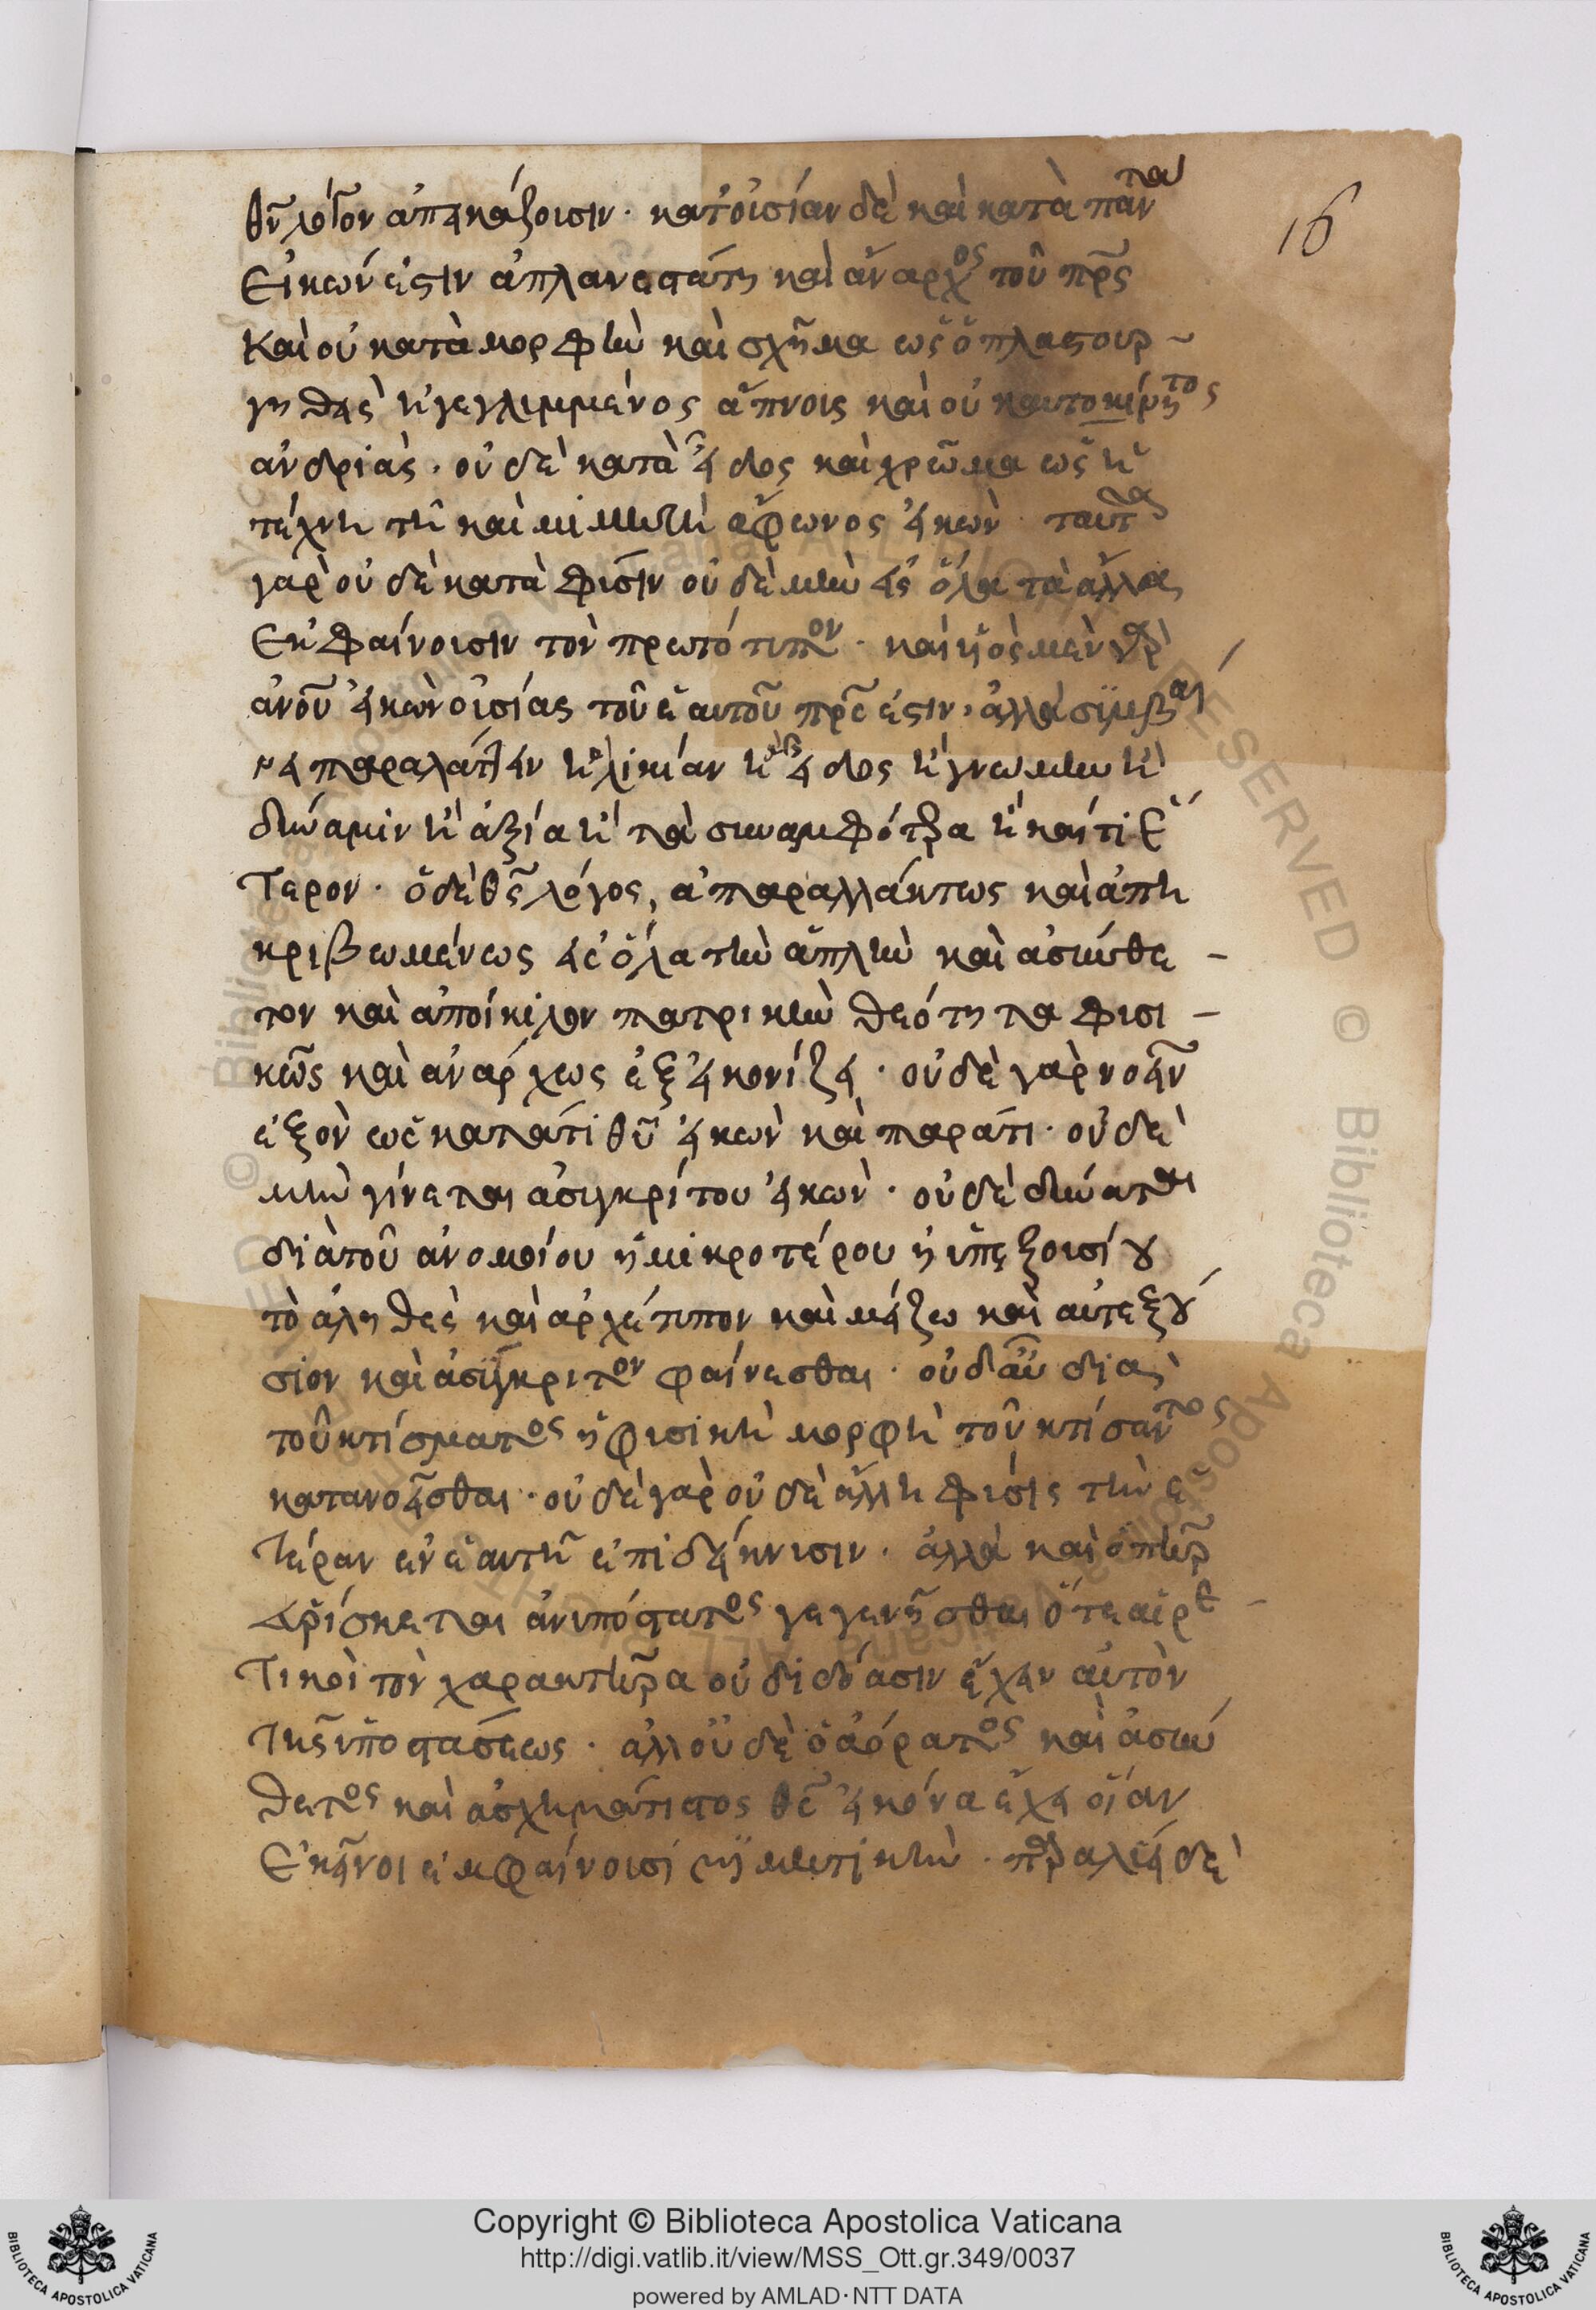 θῦ λόγον ἀπεικάζουσιν· κατ' οὐσίαν δὲ καὶ κατὰ πάντα
Εἰκών ἐστιν ἀπλανεστάτη καὶ ἄναρχος τοῦ πρς
Καὶ οὐ κατὰ μορφὴν καὶ σχῆμα ὡς ὁ πλαστουρ-
γηθεὶς ἢ γεγλυμμένος ἄπνους καὶ οὐκ αυτοκίνητος
ἀνδριάς· οὐδὲ κατὰ εἶδος καὶ χρῶμα ὡς ἡ
τέχνη τῇ καὶ μιμητὴ ἄφωνος εἰκών· ταῦτα
γὰρ οὐδὲ κατὰ φύσιν οὐδὲ μὴν εἰς ὅλα τὰ ἄλλα
Εκφαίνουσιν τὸν πρωτότυπον· καὶ υἱὸς μὲν γὰρ
ἀνοῦ εἰκὼν οὐσίας τοῦ ἑαυτοῦ πρς ἐστιν, ἀλλὰ συμβαί
νει παραλάττειν ἡλικίαν ἢ εἶδος ἢ γνώμην ἢ
δύναμιν ἢ ἀξία ἢ τὰ συναμφότερα ἢ καί τι ἕ
τερον· ὁ δὲ θς λόγος, ἀπαραλλάκτως καὶ ἀπη
κριβωμένως εἰς ὅλα τὴν ἁπλὴν καὶ ἀσύνθε-
τον καὶ ἀποίκιλον πατρικὴν θεότητα φυσι-
κῶς καὶ ἀνάρχως ἐξεικονίζει· οὐδὲ γὰρ νοεῖν
ἐξὸν ὡς κατά τι θῦ εἰκὼν καὶ παρά τι· οὐδὲ
μὴν γίνεται ἀσυγκρίτου εἰκών· οὐδὲ δύναται
διὰ τοῦ ἀνομοίου ἢ μικροτέρου ἢ ὑπεξουσίου
τὸ ἀληθὲς καὶ ἀρχέτυπον καὶ μείζω καὶ αὐτεξού
σιον καὶ ἀσύγκριτον φαίνεσθαι· οὐδ' ἂν διὰ
τοῦ κτίσματος ἡ φυσικὴ μορφὴ τοῦ κτίσαντος
κατανοεῖσθαι· οὐδὲ γὰρ οὐδὲ ἄλλη φύσις τὴν ἑ
τέραν ἐν ἑαυτῇ ἐπιδείκνυσιν· ἀλλὰ καὶ ὁ πὴρ
εὑρίσκεται ἀνυπόστατος γεγενῆσθαι ὅτε αἱρε-
τικοὶ τὸν χαρακτῆρα οὐ διδόασιν ἔχειν αὐτὸν
τῆς ὑποστάσεως· ἀλλ' οὐδὲ ὁ ἀόρατος καὶ ἀσύν
θετος καὶ ἀσχημάτιστος θς εἰκόνα ἔχει οἵαν
Εκεῖνοι ἐμφαίνουσι
16
Copyright © Biblioteca Apostolica Vaticana
http://digi.vatlib.it/view/MSS_Ott.gr.349/0037
powered by AMLAD·NTT DATA